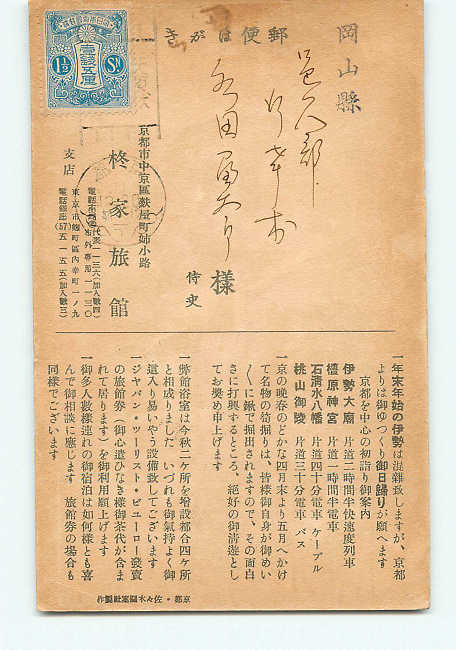 郵便はがき
壹錢五厘
1½ Sn
岡山縣
邑久郡
様
侍史
京都市中京區麩屋町姉小路
柊家旅館
支店
東京市麹町區内幸町一ノ九
電話銀座(57)五一五五(加入數三)
一年末年始の伊勢は混雜致しますが、京都
よりは御ゆつくり御日歸りが願へます
京都を中心の初詣り御案内
伊勢大廟 片道二時間半快速度列車
橿原神宮 片道一時間半電車
石淸水八幡 片道四十分電車 ケーブル
桃山御陵 片道三十分電車 バス
一京の晩春のどかな四月末より五月へかけ
て名物の筍掘りは、皆様御自身が御めい
〳〵に鍬で掘出されますので、その面白
さに打興するところ、絶好の御清遊とし
てお奬め申上げます
一弊館浴室は今秋二ケ所を增設都合四ケ所
と相成りました いづれも御氣持よく御
這入り易いやう設備致してございます
一ジヤパン・ツーリスト・ビユーロー發賣
の旅館券(御心遣ひなき様御茶代が含ま
れて居ります)を御利用願上げます
一御多人數様連れの御宿泊は如何様とも喜
んで御相談に應じます 旅館券の場合も
同様でございます
京都・佐々木